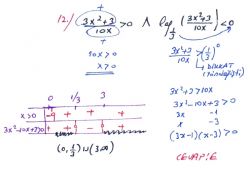 12./ 3x²+3/10x > 0 ∧ log 1/3 (3x²+3/10x) < 0
10x > 0
x > 0
3x²+3/10x > (1/3)⁰
DİKKAT
3x²+3 > 10x
3x²-10x+3 > 0
3x -1
x -3
(3x-1)(x-3) > 0
0 1/3 3
3x²-10x+3>0 + + - +
(0, 1/3) ∪ (3, ∞)
CEVAP: E